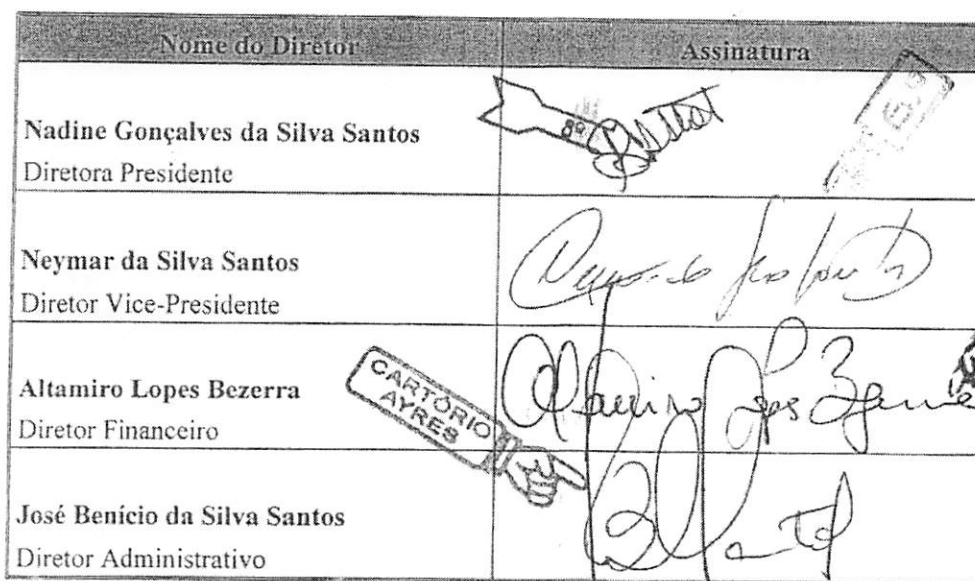 Nome do Diretor
Assinatura
Nadine Gonçalves da Silva Santos
Diretora Presidente
8º
Neymar da Silva Santos
Diretor Vice-Presidente
Altamiro Lopes Bezerra
Diretor Financeiro
CARTÓRIO
AYRES
Altamiro Lopes Bezerra
José Benício da Silva Santos
Diretor Administrativo